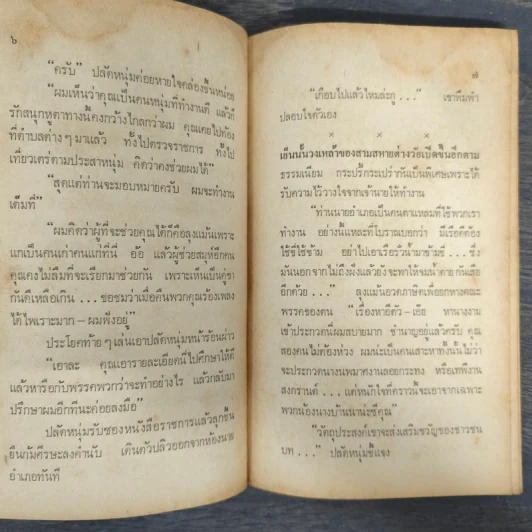 ๖
“ครับ” ปลัดหนุ่มค่อยหายใจคล่องขึ้นหน่อย
“ผมเห็นว่าคุณเป็นคนหนุ่มที่ทำงานดี แล้วก็
รักสนุกหูตาทางนี้คงกว้างไกลกว่าผม คุณเคยไปท้อง
ที่ตำบลต่างๆ มาแล้ว ทั้งไปตรวจราชการ ทั้งไป
เที่ยวเตร่ตามประสาหนุ่ม คิดว่าคงช่วยผมได้”
“สุดแต่ท่านจะมอบหมายครับ ผมจะทำงาน
เต็มที่”
“ผมคิดว่าผู้ที่จะช่วยคุณได้ก็คือลุงแม้นเพราะ
แกเป็นคนเก่าคนแก่ที่นี่ อ้อ แล้วผู้ช่วยสมุห์อีกคน
คุณคงไม่ลืมที่จะเรียกมาช่วยกัน เพราะเห็นเป็นคู่ขา
กันดีเหลือเกิน ... ขอชมว่าเมื่อคืนพวกคุณร้องเพลง
ได้ไพเราะมาก – ผมฟังอยู่”
ประโยคท้ายๆ เล่นเอาปลัดหนุ่มหน้าร้อนผ่าว
“เอาละ คุณเอารายละเอียดนี่ไปศึกษาให้ดี
แล้วหารือกับพรรคพวกว่าจะทำอย่างไร แล้วกลับมา
ปรึกษาผมอีกทีนะค่อยลงมือ”
ปลัดหนุ่มรับซองหนังสือราชการแล้วลุกขึ้น
ยืนก้มศีรษะลงคำนับ เดินตัวปลิวออกจากห้องนาย
อำเภอทันที
๗
“เกือบไปแล้วไหมล่ะกู ...” เขาพึมพำ
ปลอบใจตัวเอง
× × ×
เย็นนั้นวงเหล้าของสามสหายต่างวัยเปิดขึ้นอีกตาม
ธรรมเนียม กระปรี้กระเปร่ากันเป็นพิเศษเพราะได้
รับความไว้วางใจจากเจ้านายให้ทำงาน
“ท่านนายอำเภอเป็นคนตาแหลมที่ใช้พวกเรา
ทำงาน อย่างนี้แหละที่โบราณบอกว่า มีเรือคัดต้อง
ใช้ขี่ใช้ข้าม อย่าไปเอาเรือรั่วน้ำมาข้ามขี่ ... ซึ่ง
มันนอกจากไม่ถึงฝั่งแล้วยังจะทำให้จมน้ำตาย กันเสีย
อีกด้วย ...” ลุงแม้นอวดภาษิตเพื่อยกหางคณะ
พรรคของตน “เรื่องหาอีตัว–เอ๊ย หานางงาม
เข้าประกวดนี่ผมสบายมาก ชำนาญอยู่แล้วครับ คุณ
สองคนไม่ต้องห่วง ผมน่ะเป็นคนเสาะหาทั้งนั้นไม่ว่า
จะประกวดนางนพมาศงานลอยกระทง หรือเทพีงาน
สงกรานต์ ... แต่หนักใจที่คราวนี้จะเอาจากเฉพาะ
พวกน้องนางบ้านนาน่ะซีคุณ”
“วัตถุประสงค์เขาจะส่งเสริมขวัญของชาวชน
บท ...” ปลัดหนุ่มชี้แจง